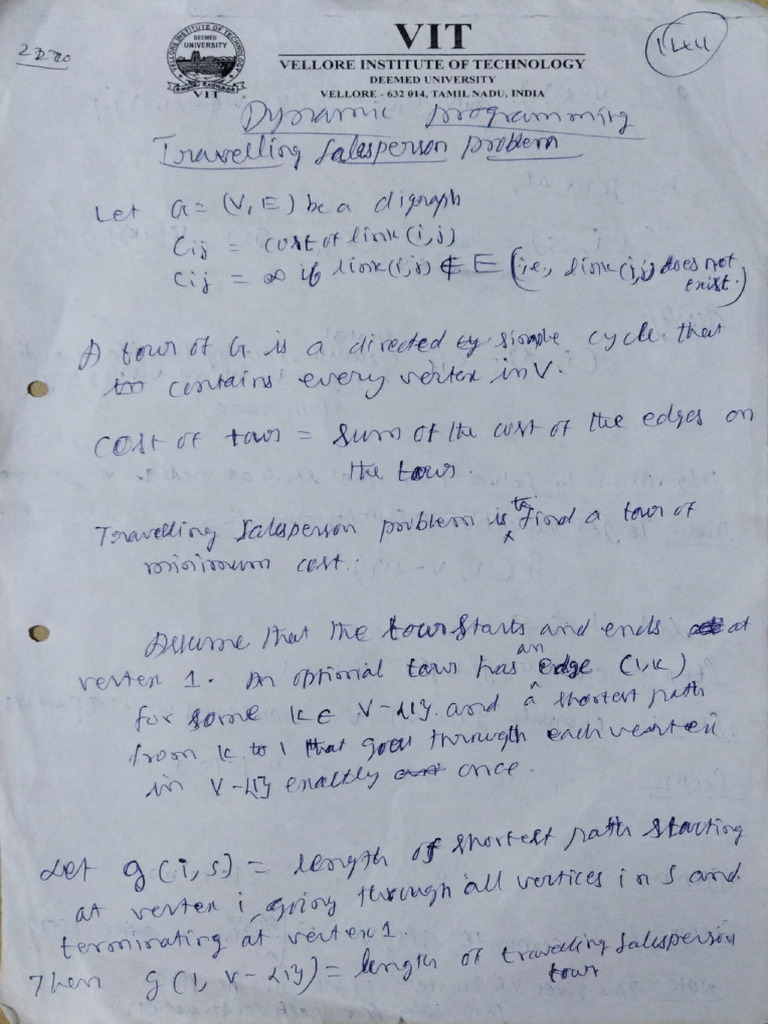 VIT
VELLORE INSTITUTE OF TECHNOLOGY
DEEMED UNIVERSITY
VELLORE - 632 014, TAMIL NADU, INDIA
VELLORE INSTITUTE OF TECHNOLOGY
DEEMED
UNIVERSITY
VIT
144
Dynamic programming
Travelling salesperson problem
Let G = (V, E) be a digraph
Cij = cost of link (i,j)
Cij = ∞ if link(i,j) ∉ E (i,e, link(i,j) does not exist.)
A tour of G is a directed simple cycle that
contains every vertex in V.
Cost of tour = sum of the cost of the edges on
the tour.
Travelling salesperson problem is to find a tour of
minimum cost.
Assume that the tour starts and ends at
vertex 1. An optimal tour has an edge (1,k)
for some k ∈ V-{1}. and a shortest path
from k to 1 that goes through each vertex
in V-{1} exactly once.
Let g(i,s) = length of shortest path starting
at vertex i, going through all vertices in S and
terminating at vertex 1.
Then g(1, V-{1}) = length of traveling salesperson
tour